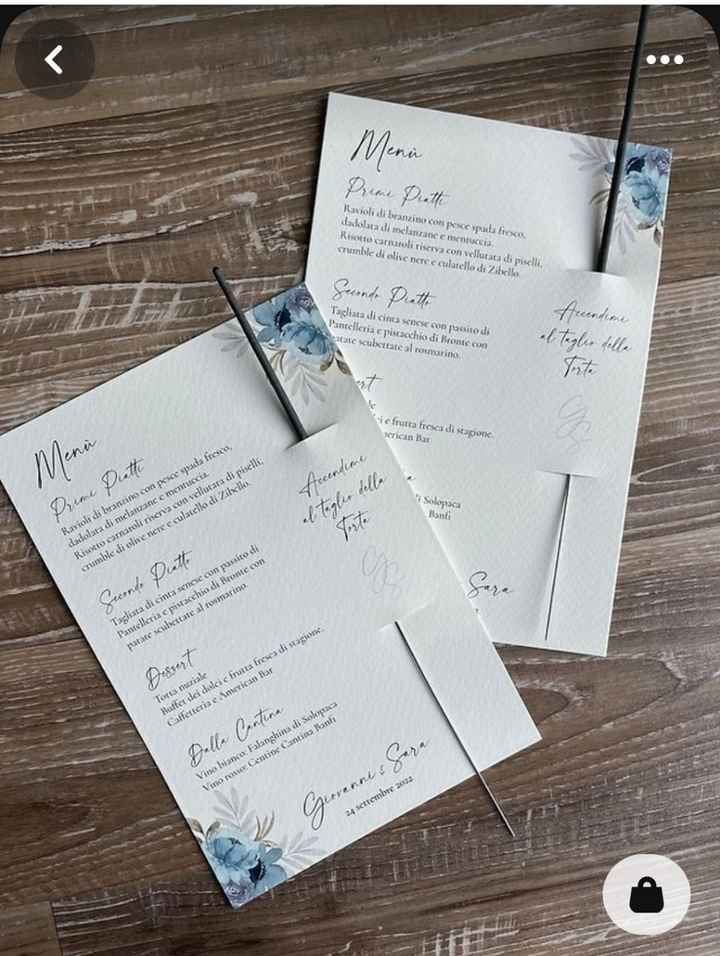 Menù
Primi Piatti
Ravioli di branzino con pesce spada fresco,
dadolata di melanzane e mentuccia.
Risotto carnaroli riserva con vellutata di piselli,
crumble di olive nere e culatello di Zibello.
Secondo Piatto
Tagliata di cinta senese con passito di
Pantelleria e pistacchio di Bronte con
patate scubettate al rosmarino.
e frutta fresca di stagione.
merican Bar
Solopaca
Banfi
Sara
Accendimi
al taglio della
Torta
GS
Menù
Primi Piatti
Ravioli di branzino con pesce spada fresco,
dadolata di melanzane e mentuccia.
Risotto carnaroli riserva con vellutata di piselli,
crumble di olive nere e culatello di Zibello.
Secondo Piatto
Tagliata di cinta senese con passito di
Pantelleria e pistacchio di Bronte con
patate scubettate al rosmarino.
Dessert
Torta nuziale
Buffet dei dolci e frutta fresca di stagione.
Caffetteria e American Bar
Dalla Cantina
Vino bianco: Falanghina di Solopaca
Vino rosso: Centine Cantina Banfi
Giovanni & Sara
24 settembre 2022
Accendimi
al taglio della
Torta
GS